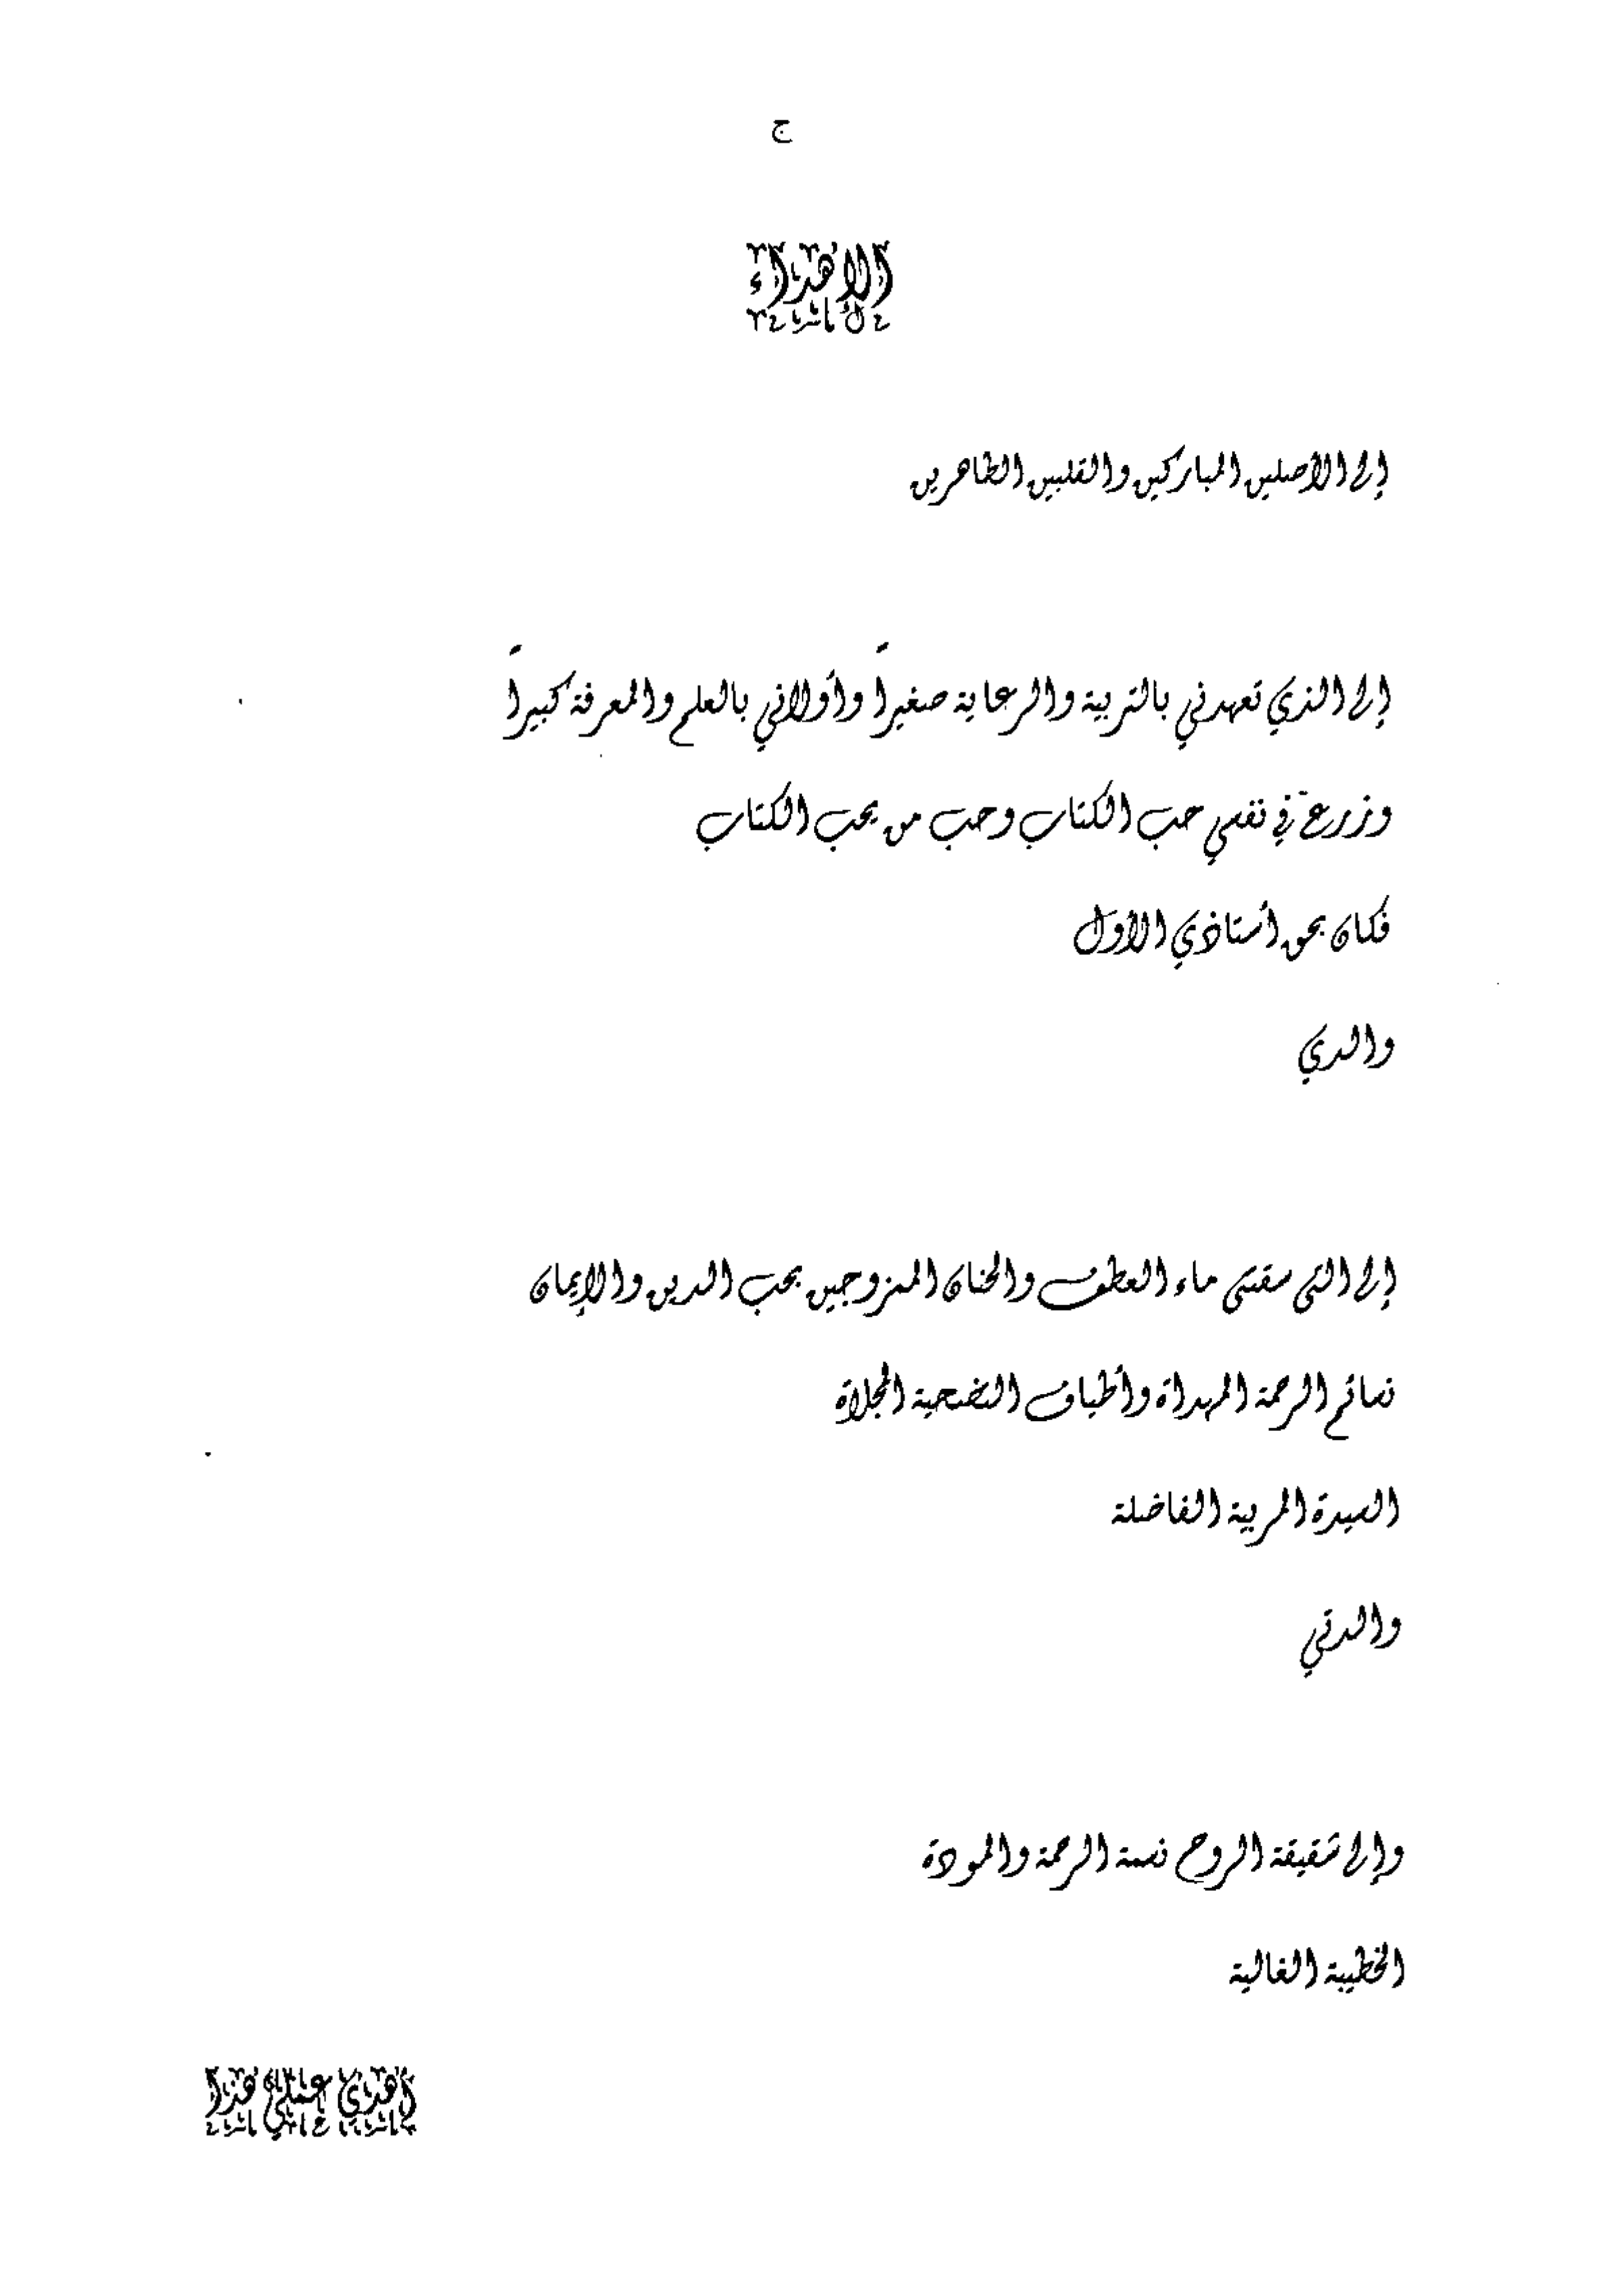 ج
الإهداء
إلى الأصلين المباركين والقلبين الطاهرين
إلى الذي تعهدني بالتربية والرعاية صغيراً وأولاني بالعلم والمعرفة كبيراً
وزرع في نفسي حب الكتاب وحب من يحب الكتاب
فكان بحق أستاذي الأول
والدي
إلى التي سقتني ماء العطف والحنان الممزوجين بحب الدين والإيمان
نسائم الرحمة المهداة وأطياف التضحية المجلاة
السيدة المربية الفاضلة
والدتي
وإلى شقيقة الروح نسمة الرحمة والمودة
الخطيبة الغالية
أهدي عملي هذا